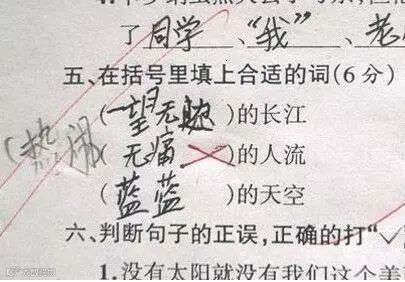 了同学、“我”、老
五、在括号里填上合适的词(6分)
(一望无)的长江
(热闹
(无痛)的人流
(蓝蓝)的天空
六、判断句子的正误,正确的打“✓
1.没有太阳就没有我们这个美